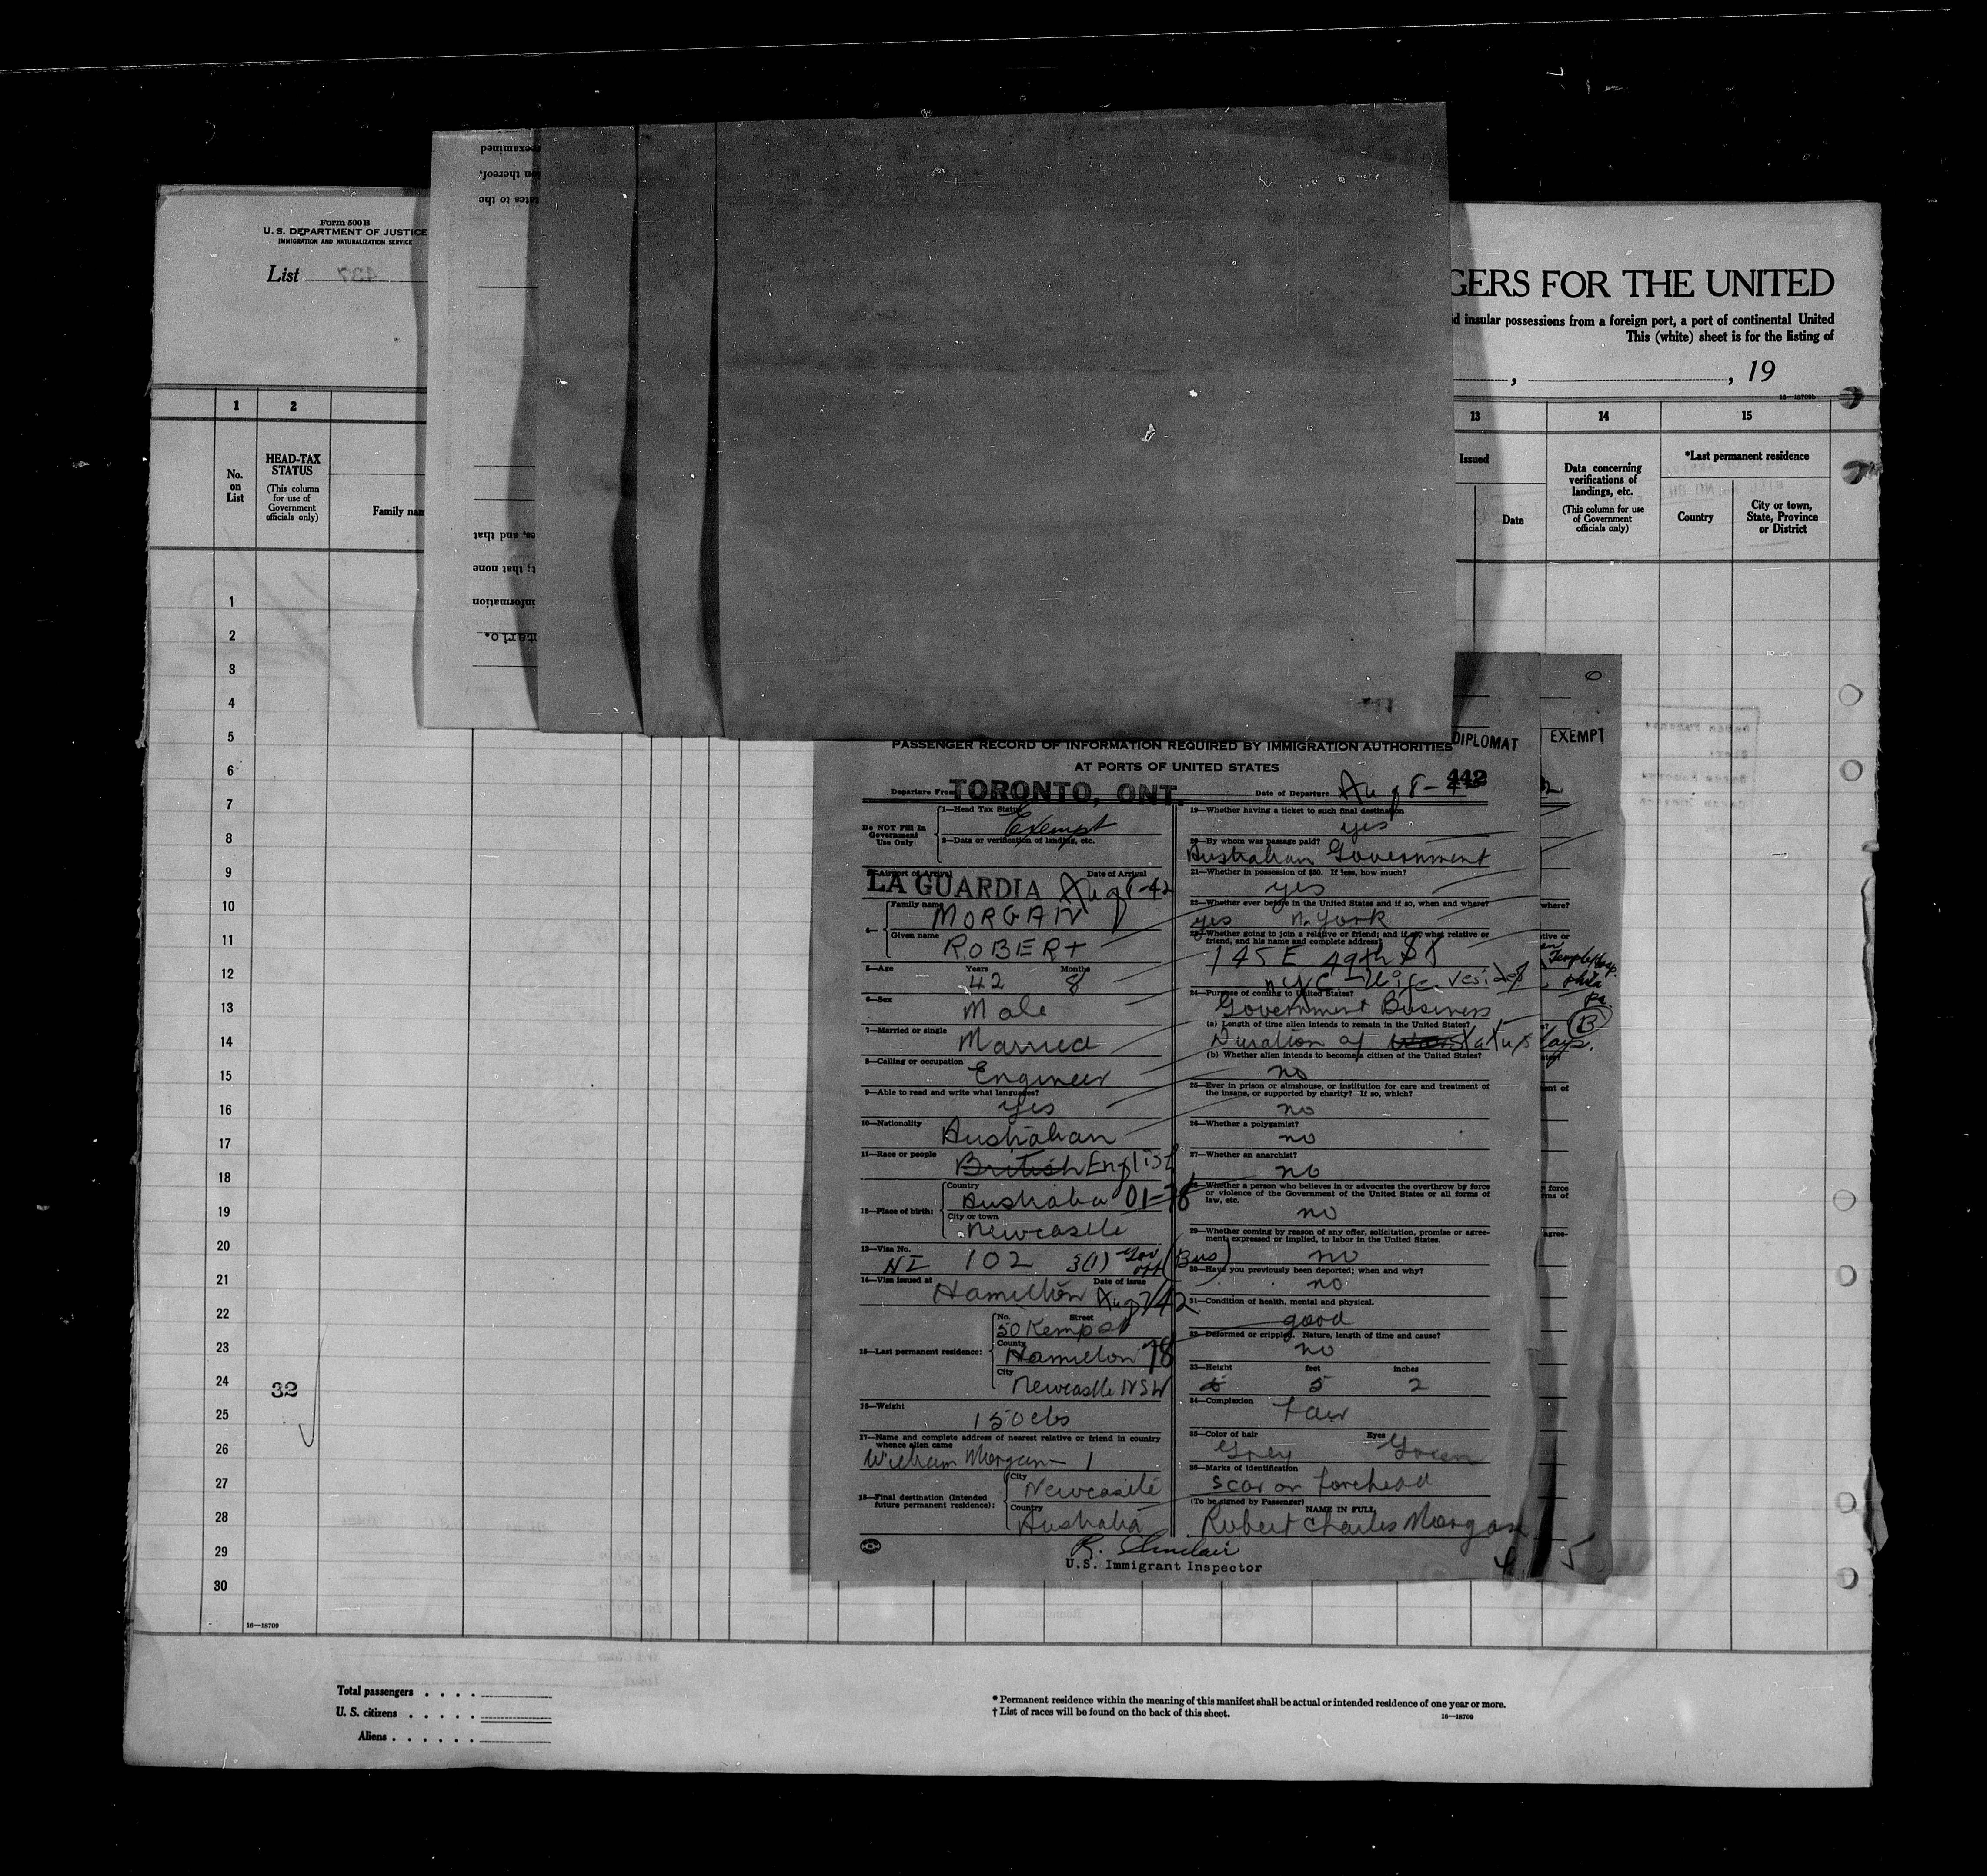 Form 500 B
U. S. DEPARTMENT OF JUSTICE
IMMIGRATION AND NATURALIZATION SERVICE
List
GERS FOR THE UNITED
insular possessions from a foreign port, a port of continental United
This (white) sheet is for the listing of
, , 19
16—18709b
1 2 13 14 15
No. on List
HEAD-TAX STATUS
(This column for use of Government officials only)
Family nam
Issued
Date
Data concerning verifications of landings, etc.
(This column for use of Government officials only)
*Last permanent residence
Country
City or town, State, Province or District
reexamined
on thereof,
states to the
es, and that
t; that none
information
tario.
1
2
3
4
5
6
7
8
9
10
11
12
13
14
15
16
17
18
19
20
21
22
23
24
32
25
26
27
28
29
30
16—18709
DIPLOMAT
EXEMPT
PASSENGER RECORD OF INFORMATION REQUIRED BY IMMIGRATION AUTHORITIES
AT PORTS OF UNITED STATES
442
Departure From TORONTO, ONT.
Date of Departure Aug 8-
Do NOT Fill In Government Use Only
1—Head Tax Status
Exempt
2—Data or verification of landing, etc.
3—Airport of Arrival Date of Arrival
LA GUARDIA Aug 8-42
4— Family name MORGAN
Given name ROBERT
5—Age Years 42 Months 8
6—Sex Male
7—Married or single Married
8—Calling or occupation Engineer
9—Able to read and write what languages?
yes
10—Nationality Australian
11—Race or people British English
12—Place of birth: Country Australia 01-78
City or town Newcastle
13—Visa No. NI 102 3(1) Gov Off (Bus)
14—Visa issued at Hamilton Date of Issue Aug 7/42
15—Last permanent residence: No. Street 50 Kemp St
County Hamilton 78
City Newcastle NSW
16—Weight 150 lbs
17—Name and complete address of nearest relative or friend in country whence alien came
William Morgan
18—Final destination (Intended future permanent residence): City Newcastle
Country Australia
19—Whether having a ticket to such final destination
yes
20—By whom was passage paid?
Australian Government
21—Whether in possession of $50. If less, how much?
yes
22—Whether ever before in the United States and if so, when and where?
yes N. York
23—Whether going to join a relative or friend; and if so, what relative or friend, and his name and complete address?
145 E 49th St
NYC - Wife resides
24—Purpose of coming to United States?
Government Business
(a) Length of time alien intends to remain in the United States?
Duration of status
(b) Whether alien intends to become a citizen of the United States?
no
25—Ever in prison or almshouse, or institution for care and treatment of the insane, or supported by charity? If so, which?
no
26—Whether a polygamist?
no
27—Whether an anarchist?
no
28—Whether a person who believes in or advocates the overthrow by force or violence of the Government of the United States or all forms of law, etc.
no
29—Whether coming by reason of any offer, solicitation, promise or agreement, expressed or implied, to labor in the United States.
no
30—Have you previously been deported; when and why?
no
31—Condition of health, mental and physical.
good
32—Deformed or crippled. Nature, length of time and cause?
no
33—Height feet 5 inches 2
34—Complexion Fair
35—Color of hair Grey Eyes Green
36—Marks of identification
scar on forehead
(To be signed by Passenger) NAME IN FULL
Robert Charles Morgan
R. Sinclair
U.S. Immigrant Inspector
4
5
where?
Phila
Pa.
B
days.
Total passengers
U. S. citizens
Aliens
* Permanent residence within the meaning of this manifest shall be actual or intended residence of one year or more.
† List of races will be found on the back of this sheet.
16—18709